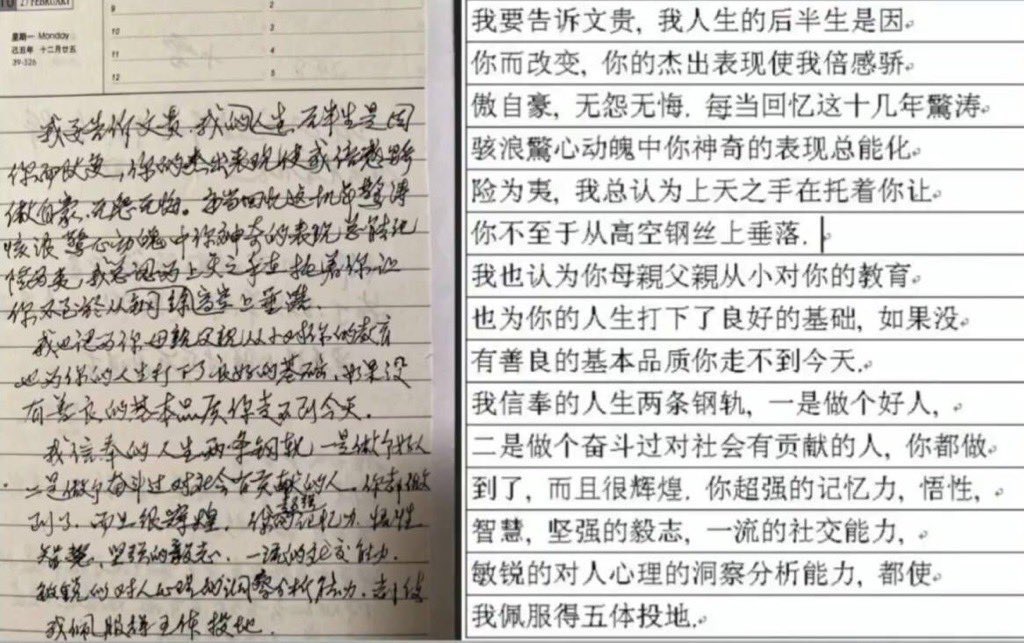 27 FEBRUARY
星期一 Monday
己丑年 十二月廿五
39-326
10 3
11 4
12 5
我要告诉文贵，我的人生后半生是因
你而改变，你的杰出表现使我倍感骄
傲自豪，无怨无悔。每当回忆这十几年驚涛
骇浪 驚心动魄中你神奇的表现总能化
险为夷，我总认为上天之手在托着你让
你不至於从钢丝高空上垂落.
我也认为你母親父親从小对你的教育
也为你的人生打下了良好的基础，如果没
有善良的基本品质你走不到今天.
我信奉的人生两条钢轨 一是做个好人
二是做个奋斗过对社会有贡献的人. 你都做
到了. 而且很辉煌. 你超强的记忆力. 悟性
智慧, 坚强的毅志. 一流的社交能力.
敏锐的对人心理的洞察分析能力. 都使
我佩服得五体投地.
我要告诉文贵, 我人生的后半生是因
你而改变, 你的杰出表现使我倍感骄
傲自豪, 无怨无悔. 每当回忆这十几年驚涛
骇浪驚心动魄中你神奇的表现总能化
险为夷, 我总认为上天之手在托着你让
你不至于从高空钢丝上垂落.
我也认为你母親父親从小对你的教育
也为你的人生打下了良好的基础, 如果没
有善良的基本品质你走不到今天.
我信奉的人生两条钢轨, 一是做个好人,
二是做个奋斗过对社会有贡献的人, 你都做
到了, 而且很辉煌. 你超强的记忆力, 悟性,
智慧, 坚强的毅志, 一流的社交能力,
敏锐的对人心理的洞察分析能力, 都使
我佩服得五体投地.